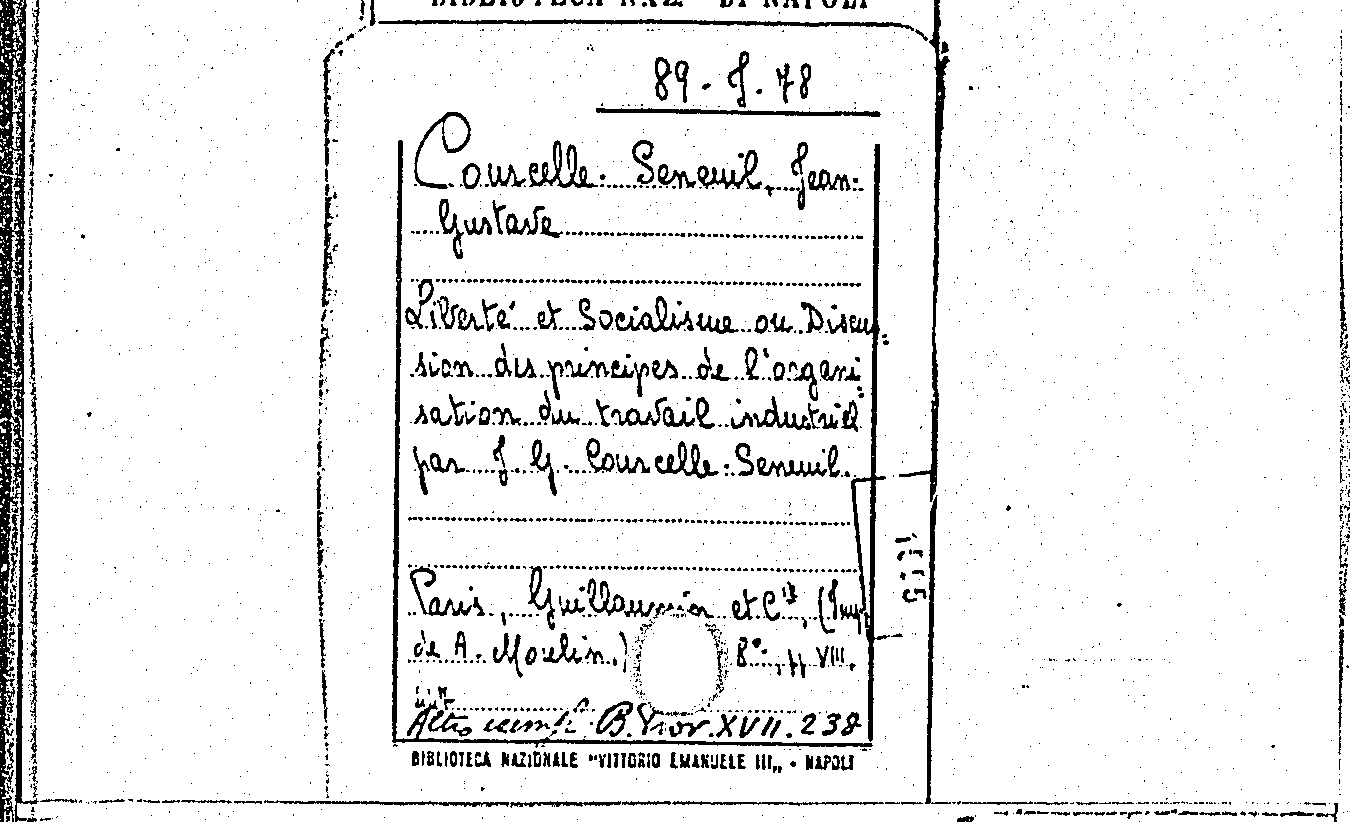 BIBLIOTECA NAZ. DI NAPOLI
89. J. 78
Courcelle-Seneuil, Jean-
Gustave
Liberté et Socialisme ou Discus-
sion des principes de l'organi-
sation du travail industriel
par J. G. Courcelle-Seneuil.
Paris, Guillaumin et Cie, (Imp.
de A. Moulin.) 8º., pp VIII.
Altro esempl. B. Prov. XVII. 238
BIBLIOTECA NAZIONALE "VITTORIO EMANUELE III" - NAPOLI